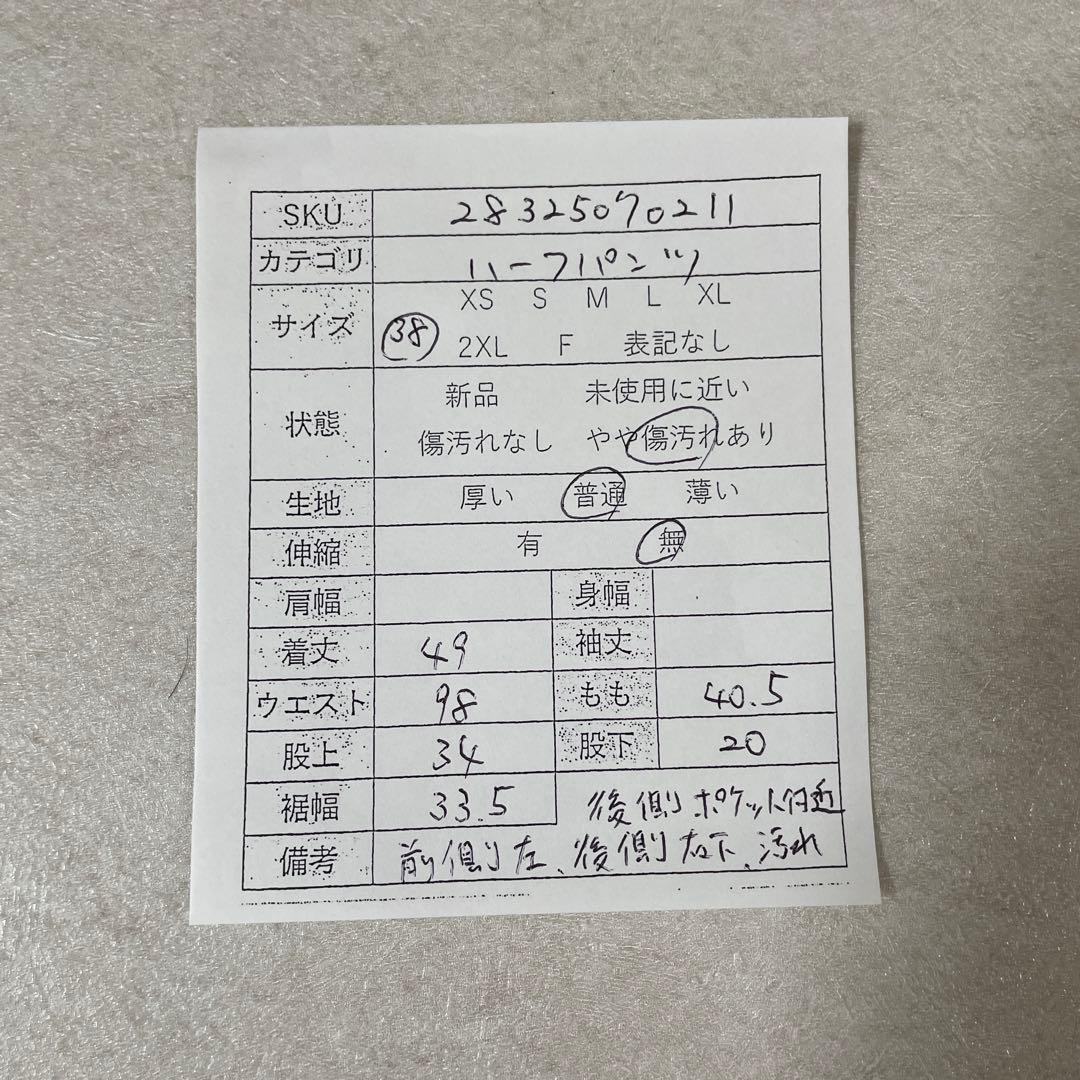 SKU 28325070211
カテゴリ ハーフパンツ
XS S M L XL
サイズ 38
2XL F 表記なし
新品 未使用に近い
状態
傷汚れなし やや傷汚れあり
生地 厚い 普通 薄い
伸縮 有 無
肩幅 身幅
着丈 49 袖丈
ウエスト 98 もも 40.5
股上 34 股下 20
裾幅 33.5 後側ポケット付近
備考 前側左、後側右下、汚れ